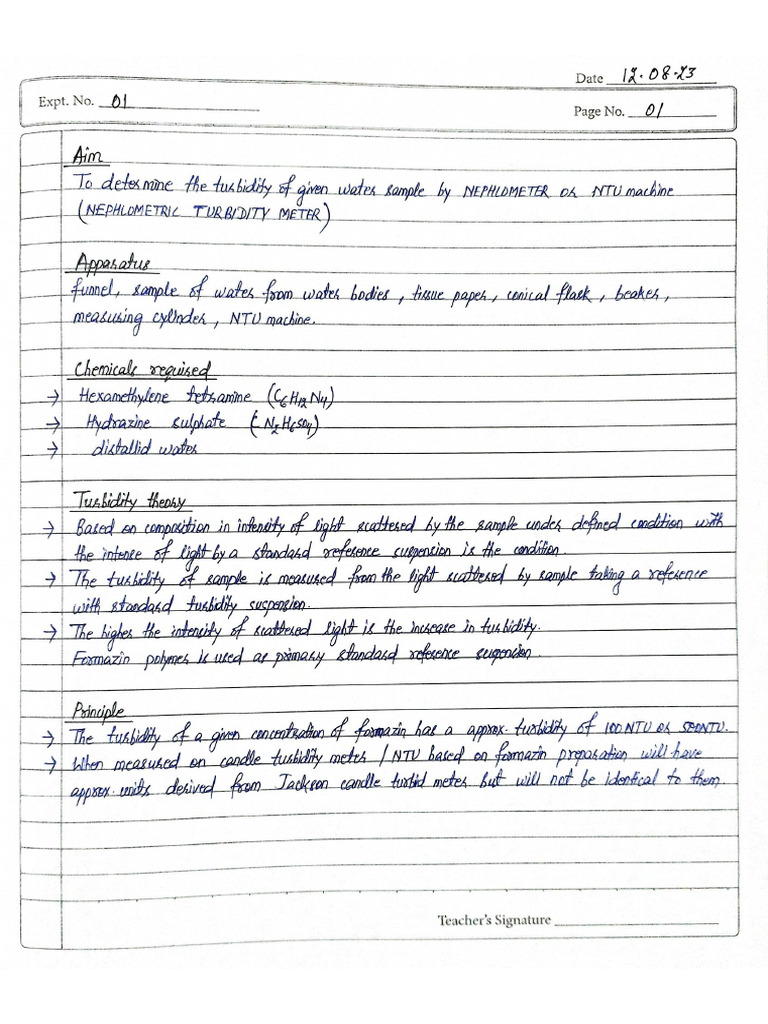 Date 12.08.23
Expt. No. 01
Page No. 01
Aim
To determine the turbidity of given water sample by NEPHLOMETER or NTU machine
(NEPHLOMETRIC TURBIDITY METER)
Apparatus
funnel, sample of water from water bodies, tissue paper, conical flask, beaker,
measuring cylinder, NTU machine.
Chemicals required
→ Hexamethylene tetramine (C6H12N4)
→ Hydrazine sulphate (N2H6SO4)
→ distallid water
Turbidity theory
→ Based on composition in intensity of light scattered by the sample under defined condition with
the intense of light by a standard reference suspension is the condition.
→ The turbidity of sample is measured from the light scattered by sample taking a reference
with standard turbidity suspension.
→ The higher the intensity of scattered light is the increase in turbidity.
Formazin polymer is used as primary standard reference
Principle
→ The turbidity of a given concentration of formazin has a approx. turbidity of 100 NTU or NTU.
→ When measured on candle turbidity meter / NTU based on formazin preparation will have
approx. units derived from Jackson candle turbid meter but will not be identical to them
Teacher's Signature